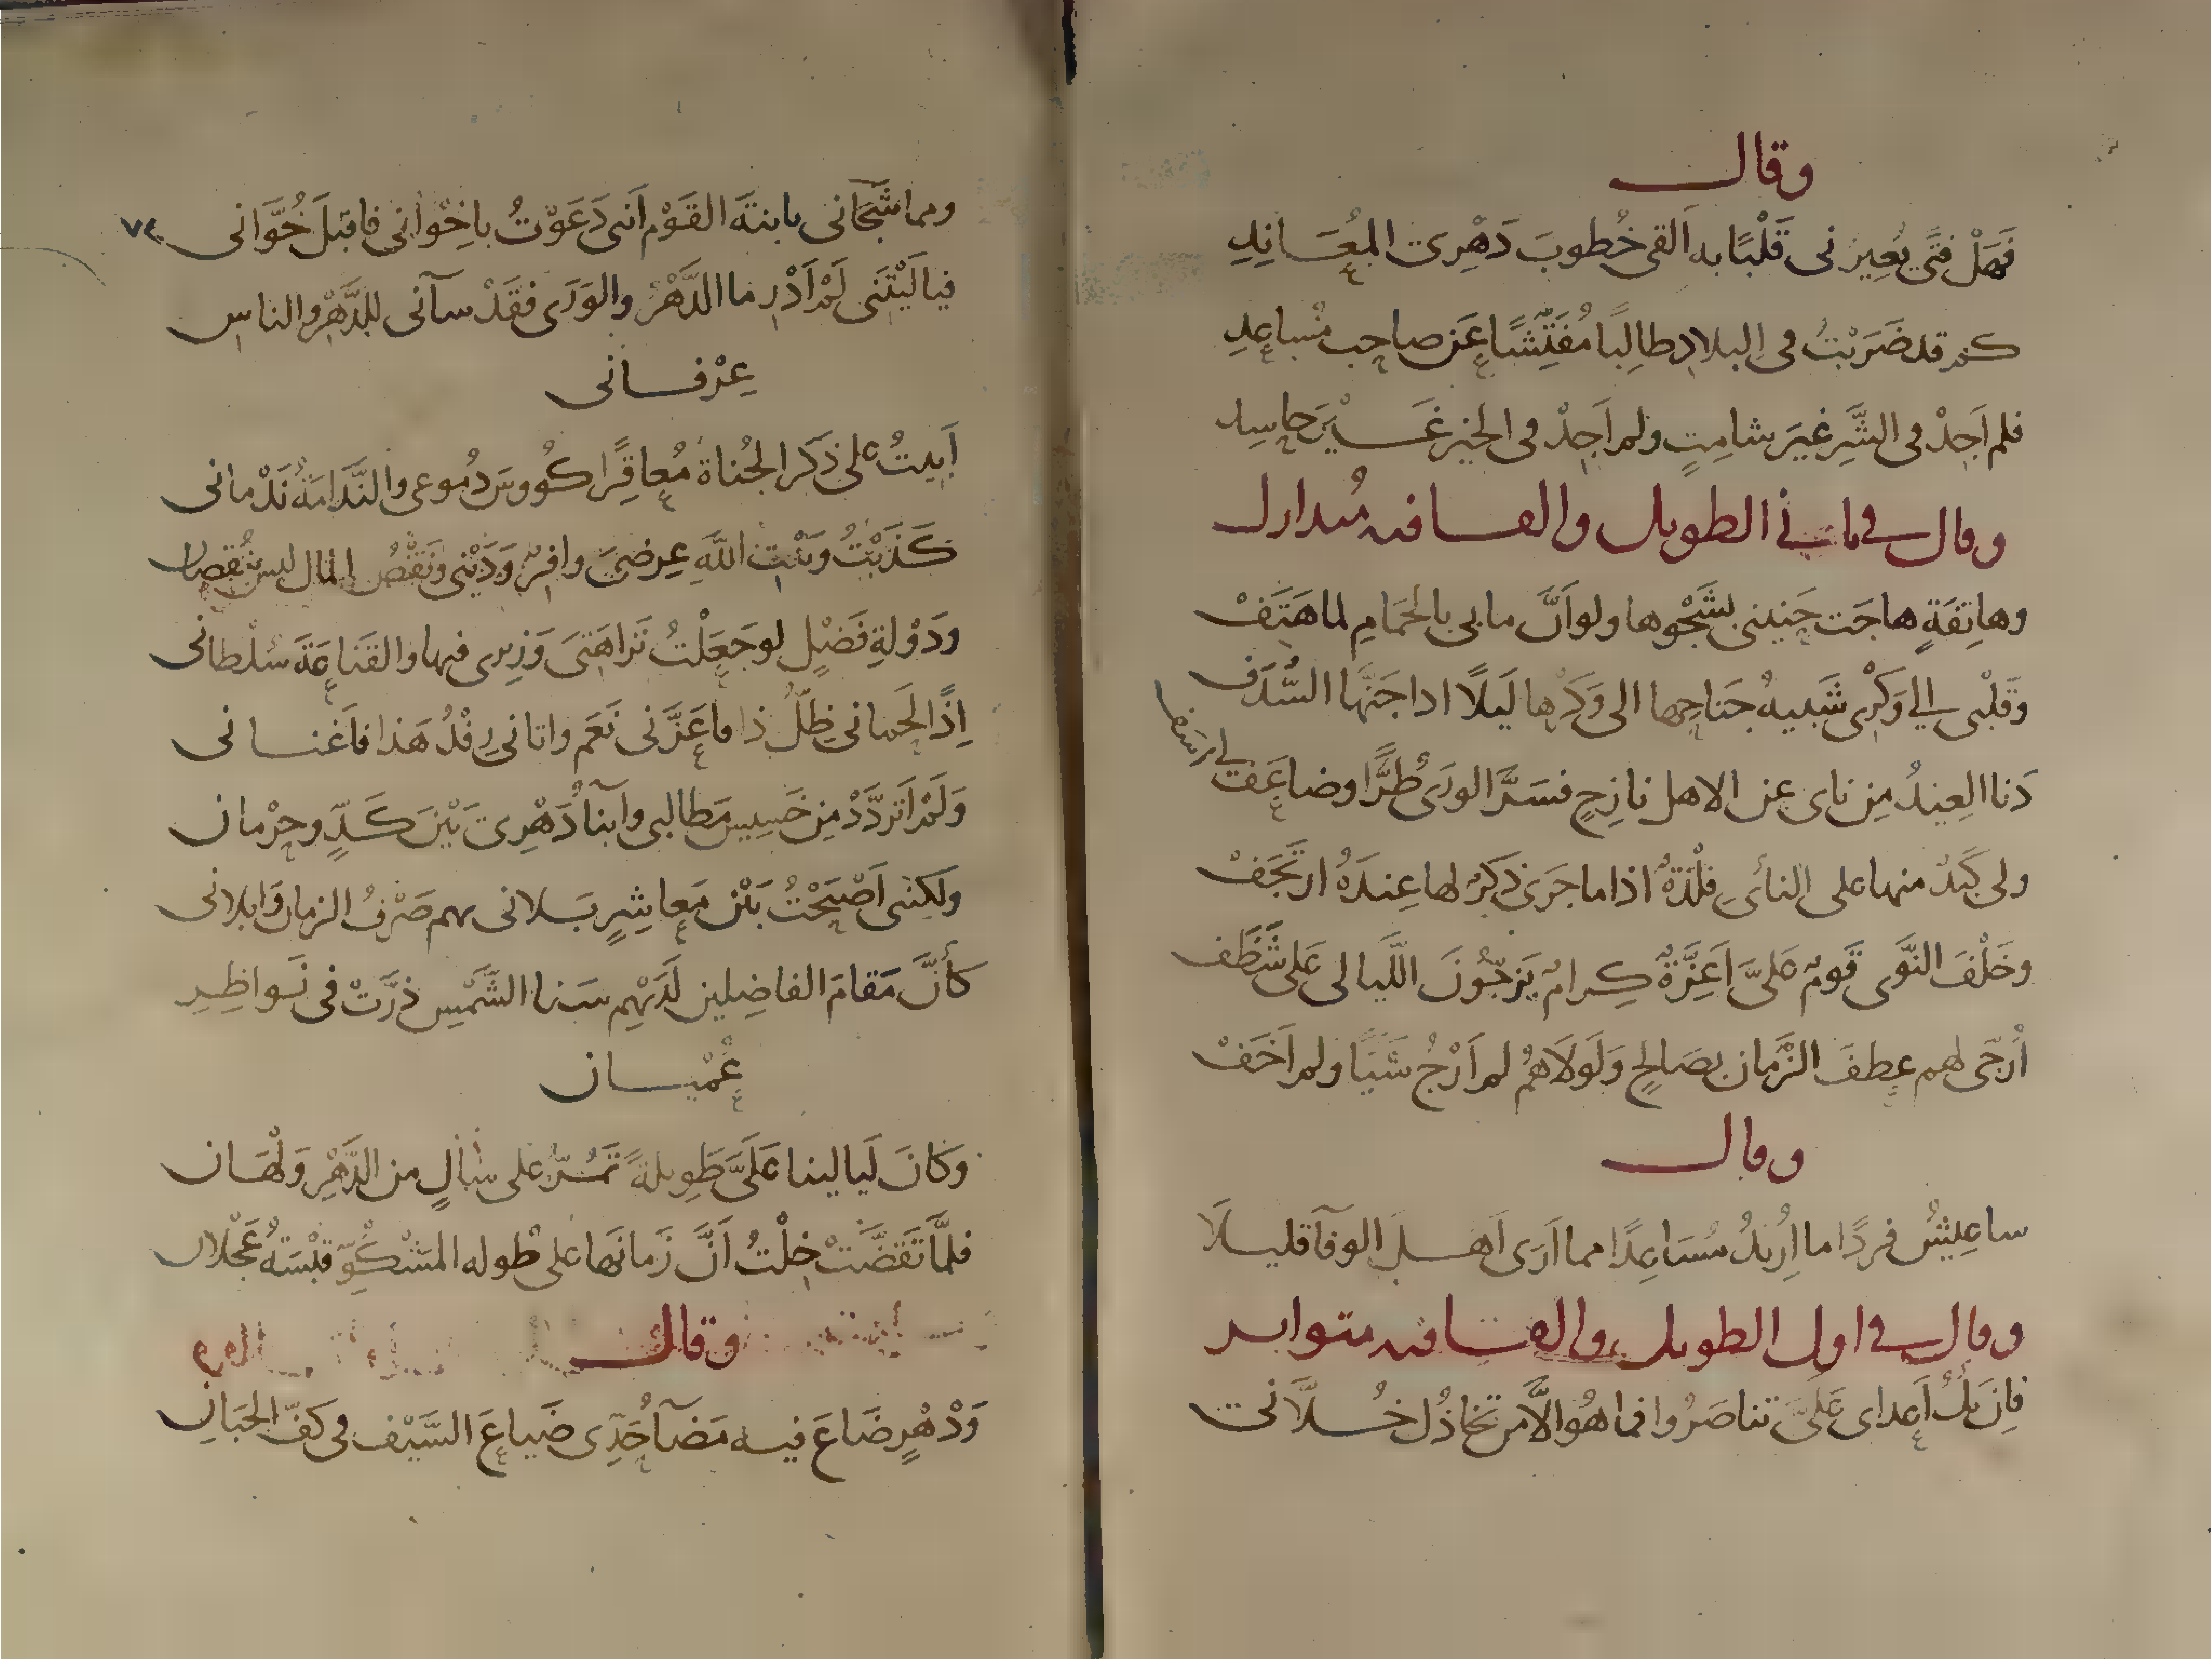 وقال
فَهَلْ فتًى يُعِيرنى قَلْبًا به اَلقى خُطوبَ دَهْرِىَ المُعَانِدِ
كم قد ضَرَبْتُ فى البلاد طالِبًا مُفَتِّشًا عَن صاحِب مُساعِدِ
فلم اَجِدْ فى الشَّرِ غيرَ شامِتٍ ولم اَجِدْ فى الخير غَيْرَ حاسِد
وقال فى ثانى الطويل والقافيه مُتدارك
وهاتِفَةٍ هاجَت حَنينى بشَجْوها ولو اَنَّ مابى بالحَمَامِ لما هَتَفْ
وَقَلْبى الى وَكْرِى شَبيهُ جَناحِها الى وَكْرِها لَيلًا اذا جَنَّها السُّدَف
دَنا العِيدُ مِن ناى عن الاهل نازِحٍ فسَرَّ الورَى طُرًّا وضاعَفَ لى اسَفا
ولى كَبَدٌ منها على النأىِ فِلْذَةٌ اذا ما جَرَى ذكرٌ لها عِندَهُ ارتَجَفْ
وخَلْفَ النَّوَى قَومٌ عَلىَّ اَعِزَّةٌ كِرامٌ يَزجّونَ اللَّيالى عَلى شَظَف
اُرَجّى لهم عطفَ الزَّمان بصَالحٍ وَلَولَاهُمُ لم اَرْجُ شَيَاً ولم اَخَفْ
وقال
ساعِيشُ فردًا ما اُرِيدُ مُسَاعِدًا مما اَرَى اَهل الوفآ قليلَا
وقال فى اول الطويل والقافيه متواتر
فاِن يَكُ اَعداى عَلىَّ تناصَرُوا فما هُوَ الَّا من تخاذُل خُلَّانى
ومما شَجَانى يابنةَ القَوْمِ اَننى دَعَوْتُ باِخْوانى فاقبَلَ خُوَّانى
٧٤
فيالَيْتَنى لَمْ اَدْرِ ما الدَّهْرُ والوَرَى فقَدْ سآنى للدَّهْرِ والناسِ
عِرْفانى
اَبيتُ على ذَكر الجُناة مُعاقِرًا كُووسَ دُموعى والنَّدَامَةُ نَدْمانى
كَذَبْتُ وبَيْتِ اللَّهِ عِرضىَ وافِرٌ وَدَيْنى ونَقْصُ المال ليس بنُقصان
ودَوْلةِ فَضْلٍ لو جَعَلْتُ نَزاهَتىَ وَزيرى فيها والقَناعَةَ سُلْطانى
اِذًا لحَمانى ظِلُّ ذا ما عَزَّنى نَعَم واتانى رِفْدُ هَذا فاَغنانى
وَلَمْ اَتَردَّدْ مِن خَسِيس مَطالبى وآبناآُ دَهْرِىَ بَيْنَ كَدٍّ وحِرْمان
ولكِننى اَصْبَحْتُ بَيْن مَعاشِرٍ بَلانى بهم صَرْفُ الزمان وَابلانى
كأنَّ مَقامَ الفاضِلين لَدَيْهِم سَنا الشَّمْسِ ذرَّتْ فى نَواظِرِ
عُمْيان
وَكانَ لَيالينا عَلَىَّ طَويلةً تَمُرُّ على سَالٍ من الدَّهْرِ وَلْهَان
فلمَّا تَقَضَّتْ خِلْتُ اَنَّ زَمانَها على طوله المَشْكُوّ قبْسَةُ عَجْلان
وقال
وَدْهْرٍ ضَاعَ فيه مَضَآ حَدِّى ضَياعَ السَّيْف فى كَفّ الجَبَانِ